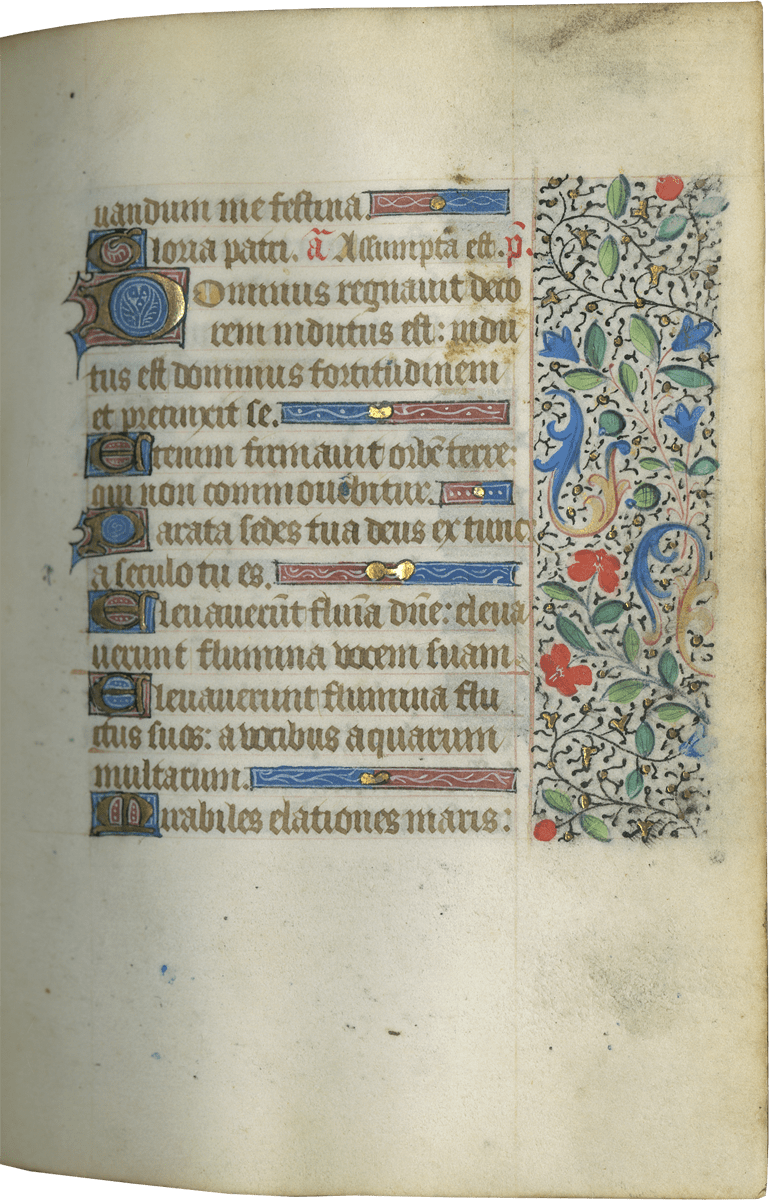 uandum me festina.
Gloria patri. a᷃ Assumpta᷃ est. p̃.
Dominus regnauit deco
rem indutus est: indu
tus est dominus fortitudinem
et precinxit se.
Etenim firmauit orbe᷃ terre:
qui non commouebitur.
Parata sedes tua deus ex tunc
a seculo tu es.
Eleuauerũt flumĩa dñe: eleua
uerunt flumina vocem suam.
Eleuauerunt flumina flu
ctus suos: a vocibus aquarum
multarum.
Mirabiles elationes maris: